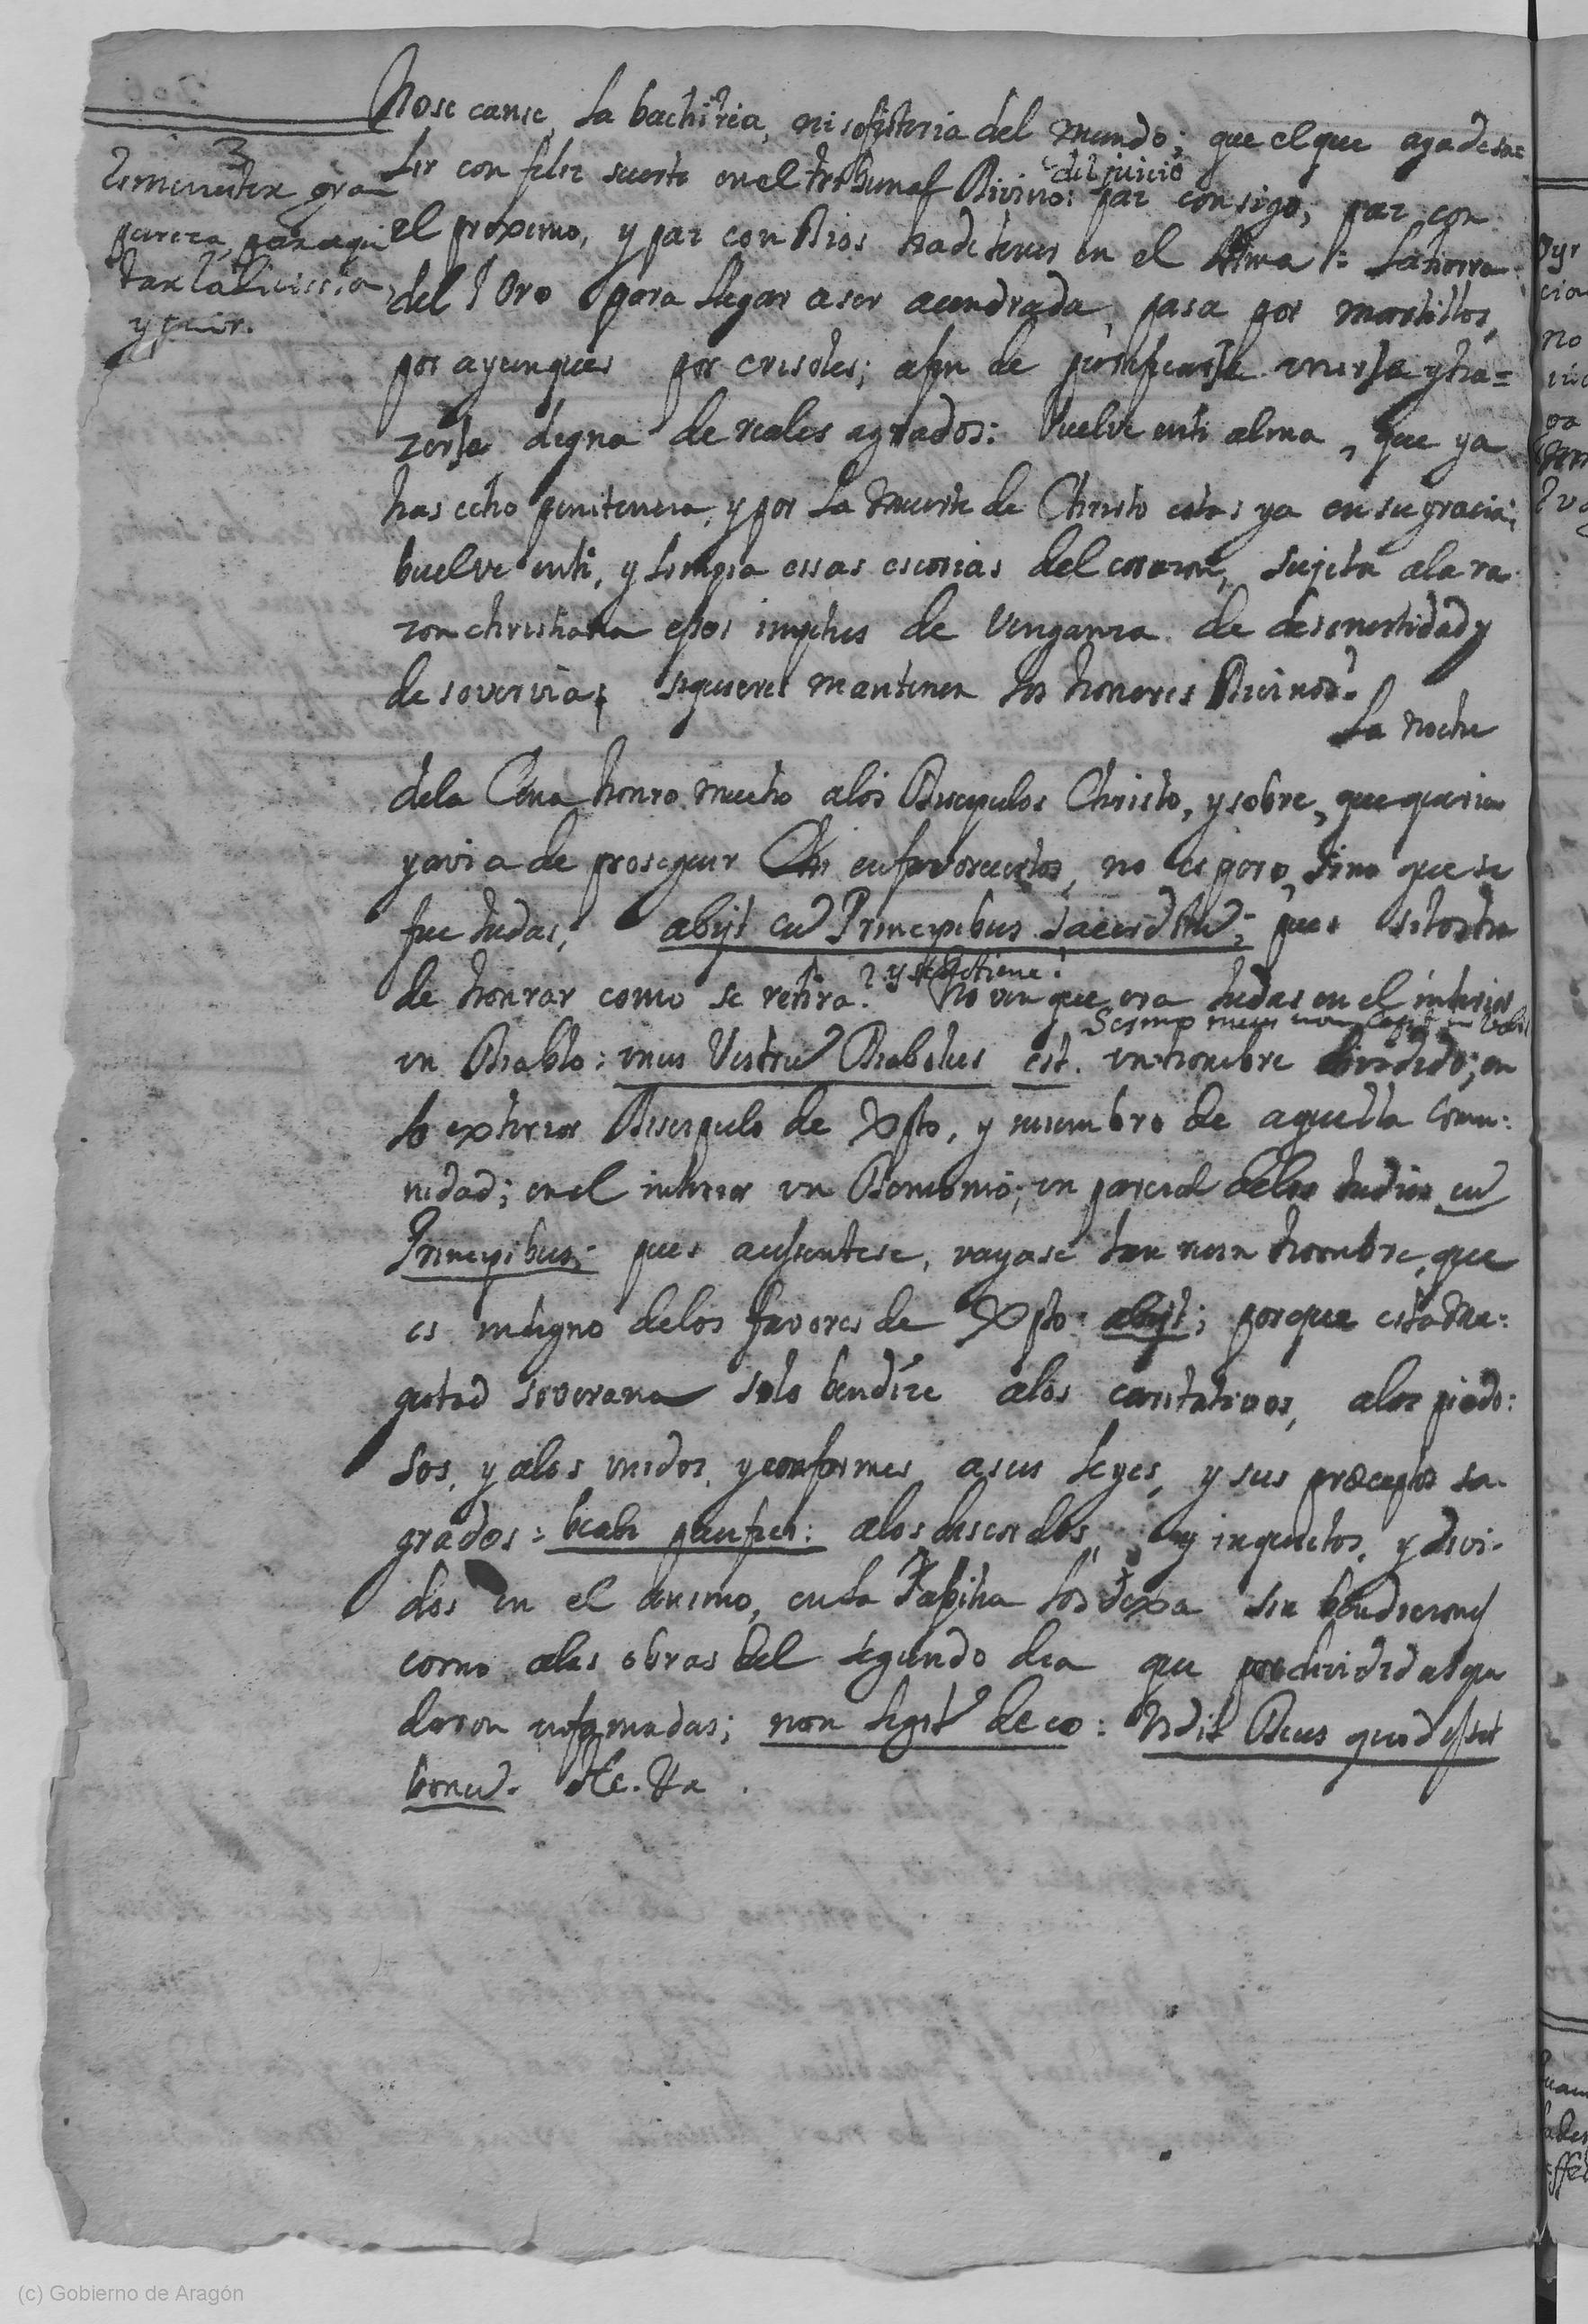 3
Es menester gra
pureza, para qui
tar la licencia
y
No se canse, la bachireia, ni sofisteria del mundo; que el que aya de sa=
lir con feliz suerte en el tribunal Divino: paz consigo, paz con
del juicio
el proximo, y paz con Dios ha de tener en el Alma:
del Oro para llegar a ser acendrada, pasa por martillos,
por ayunques por crisoles; a fin de purificarse unirse y ha=
zerse digna de reales agrados: Vuelve en ti alma, que ya
has echo penitencia, y por la muerte de Christo estas ya en su gracia;
buelve en ti, y limpia essas escorias del corazon, sujeta a la ra
zon christiana essos impetus de venganza de desonestidad y
de sovervia; si quieres mantener los honores Divinos.
La noche
de la Cena honro mucho a los Discipulos Christo, y sobre, que queria
y avia de proseguir en favorecerlos, no espero, sino que se
fue Judas; abijt cu Principibus Sacerdotu; pues si los ha
de honrar como se retira? y se detiene? No ven que era Judas en el interior
Sermo meus non capit in vobis
un Diablo: unus Vestru Diabolus est. un hombre dividido; en
lo exterior Discipulo de Xpto, y miembro de aquella Comu:
nidad; en el interior un Demonio; un parcial de los Judios cu
Principibus; pues ausentese, vayase tan ruin hombre, que
es indigno de los favores de Xpto: abijt; porque esta Ma:
gestad soverana solo bendize a los caritativos, a los piado:
sos, y a los unidos, y conformes a sus leyes, y sus preceptos sa
grados: beati pacifici: a los discordes, y inquietos, y divi
dos en el animo, en la los dexa sin bendiciones
como a las obras del segundo dia que por divididas que
daron informadas; non legit de eo: Vidit Deus quod esset
bonu.
(c) Gobierno de Aragón